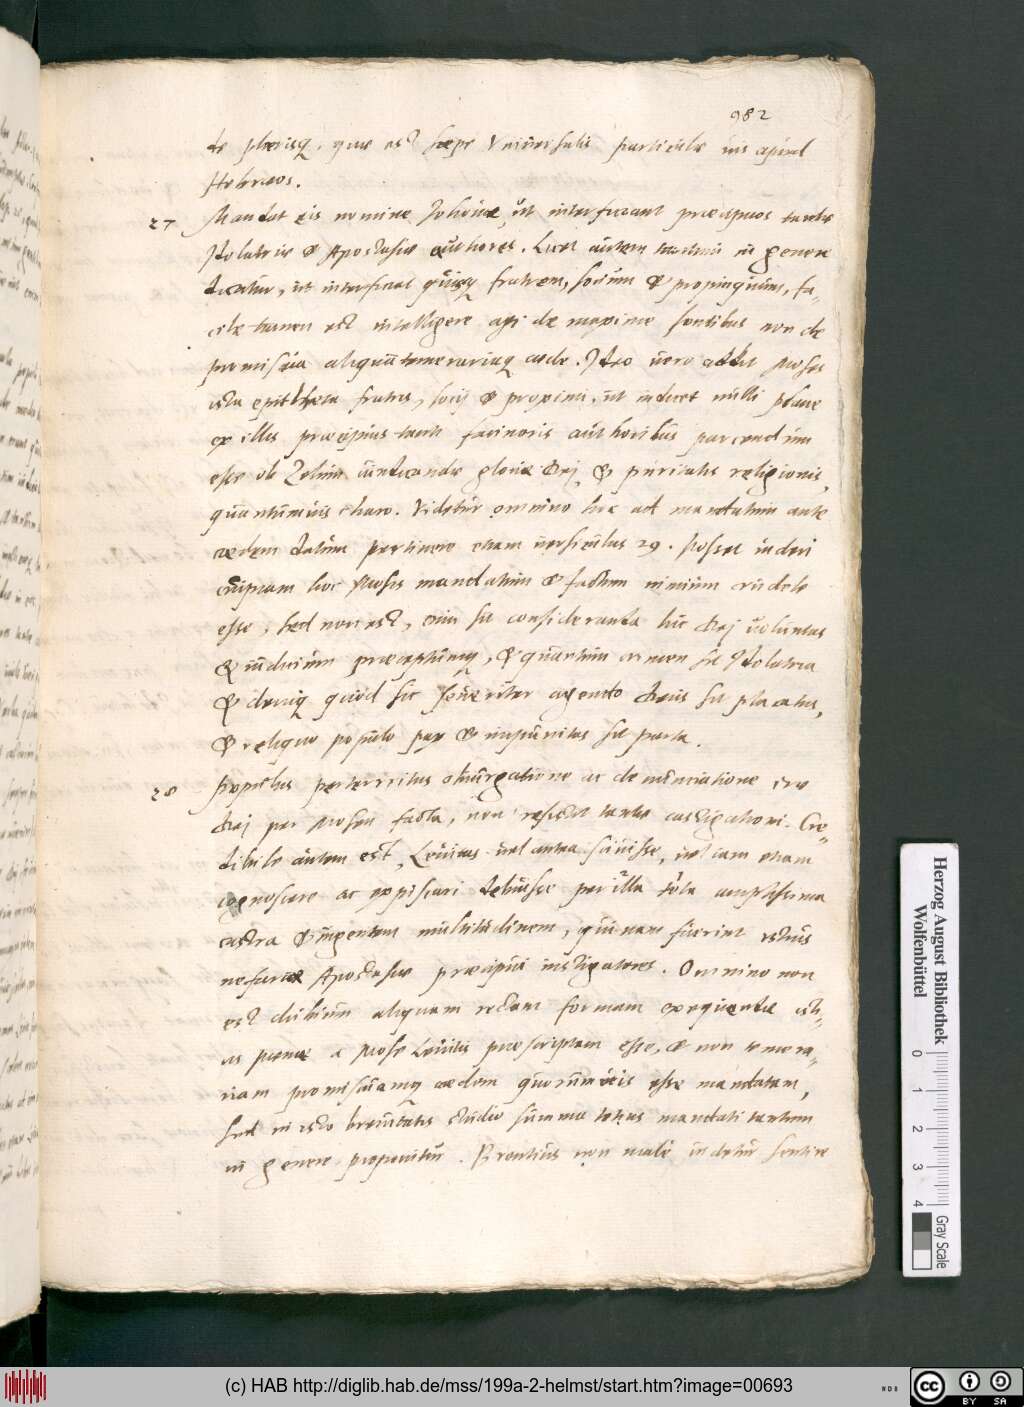 982
de plerisq, quae est saepe Universalis particulae vis apud
Hebraeos.
27 Mandat eis nomine Jehovae, ut interficiant praecipuos tantae
Idolatriae & Apostasiae authores. Licet autem tantum in genere
dicatur, ut interficiat quisq fratrem, socium & propinquum, fa-
cile tamen est intelligere agi de maxime sontibus non de
promiscua aliqua temerariaq caede. Ideo vero addit Moses
ista epitheta fratris, socij & proximi, ut indicet nulli plane
ex illis praecipuis tanti facinoris authoribus parcendum
esse ob Zelum vindicandae gloriae Dej, & puritatis religionis,
quantumvis charo. Videtur omnino huc ad mandatum ante
caedem datum pertinere etiam versiculus 29. Posset videri
cuipiam hoc Mosis mandatum & factum nimium crudele
esse, sed non est, cum sit consideranda hic Dej voluntas
& iudicium praeceptumq, & quantum crimen sit Idolatria
& deniq quod sic severiter agendo Deus sit placatus,
& reliquo populo pax & impunitas sit parta.
28 Populus perterritus obiurgatione ac denunciatione irae
Dej per Mosen facta, non resistit tantae castigationi. Cre-
dibile autem est, Levitas vel antea scivisse, vel tam etiam
cognoscere ac expiscari debuisse per illa tota amplissima
castra & ingentem multitudinem, quinam fuerint istius
nefariae Apostasiae praecipui instigatores. Omnino non
est dubium aliquam rectam formam exequendae isti-
us poenae a Mose Levitis praescriptam esse, & non temera-
riam promiscuamq caedem quorumvis esse mandatam,
sed in isto brevitatis studio summa totius mandati tantum
in genere proponitur. Brentius non male videtur sentire
Herzog August Bibliothek
Wolfenbüttel
0 1 2 3 4
Gray Scale
(c) HAB http://diglib.hab.de/mss/199a-2-helmst/start.htm?image=00693
cc BY SA